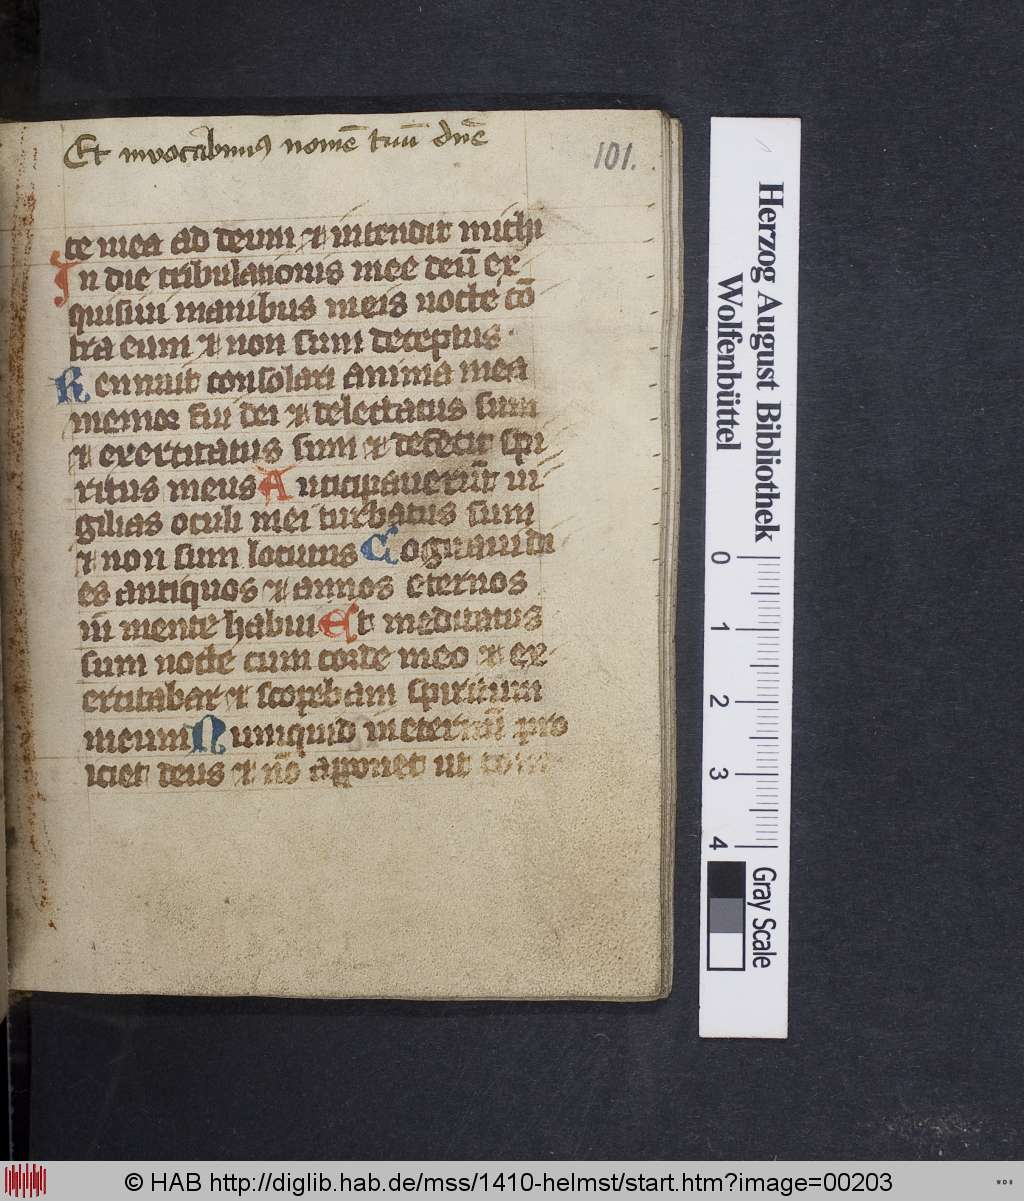 Et invocabimus nomē tuū dn̄e
101.
te mea ad deum et intendit michi
In die tribulationis mee deū ex
quisiui manibus meis nocte cō
tra eum et non sum deceptus
Rennuit consolari anima mea
memor fui dei et delectatus sum
et exercitatus sum et defecit spi
ritus meus Anticipauerūt ui
gilias oculi mei turbatus sum
et non sum locutus Cogitaui di
es antiquos et annos eternos
in mente habui Et meditatus
sum nocte cum corde meo et ex
ercitabar et scopebam spiritum
meum Numquid in eternū pro
iciet deus et nō apponet ut
Herzog August Bibliothek
Wolfenbüttel
0 1 2 3 4
Gray Scale
© HAB http://diglib.hab.de/mss/1410-helmst/start.htm?image=00203